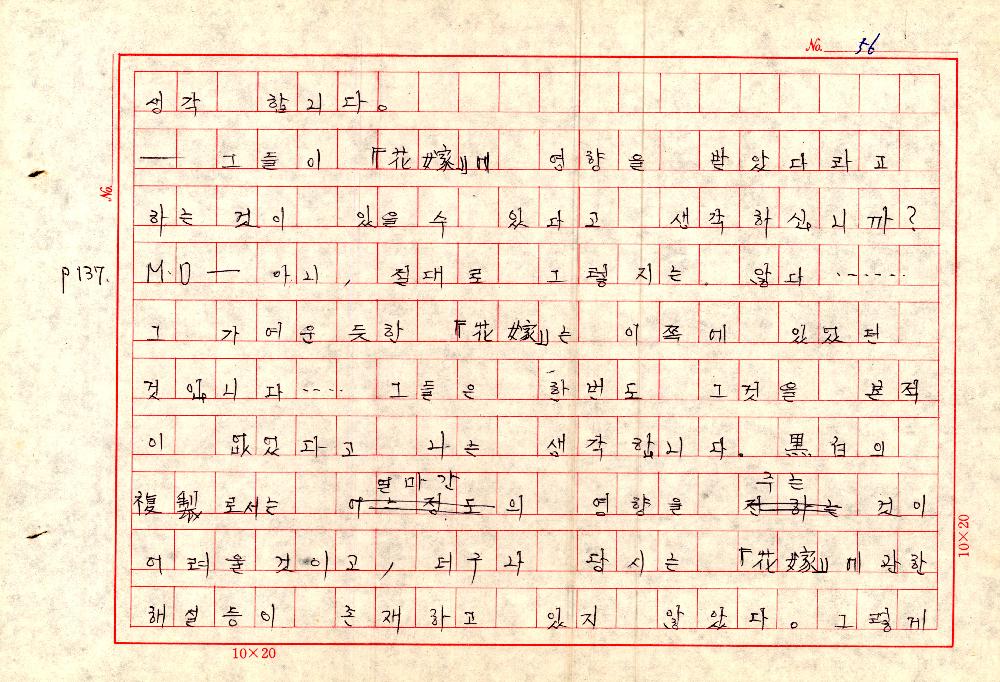 No. 56
생각 합니다。
— 그들이 『花嫁』에 영향을 받았다라고
하는 것이 있을 수 있다고 생각하십니까?
No.
p137.
M.D — 아니, 절대로 그렇지는. 않다 ……
그 가여운 듯한 『花嫁』는 이쪽에 있었던
것입니다…. 그들은 한번도 그것을 본적
이 없었다고 나는 생각합니다. 黒白의
얼마간 주는
複製로서는 어느정도의 영향을 전하는 것이
어려울것이고, 더구나 당시는 『花嫁』에 관한
해설등이 존재하고 있지 않았다。 그렇게
10×20
10×20